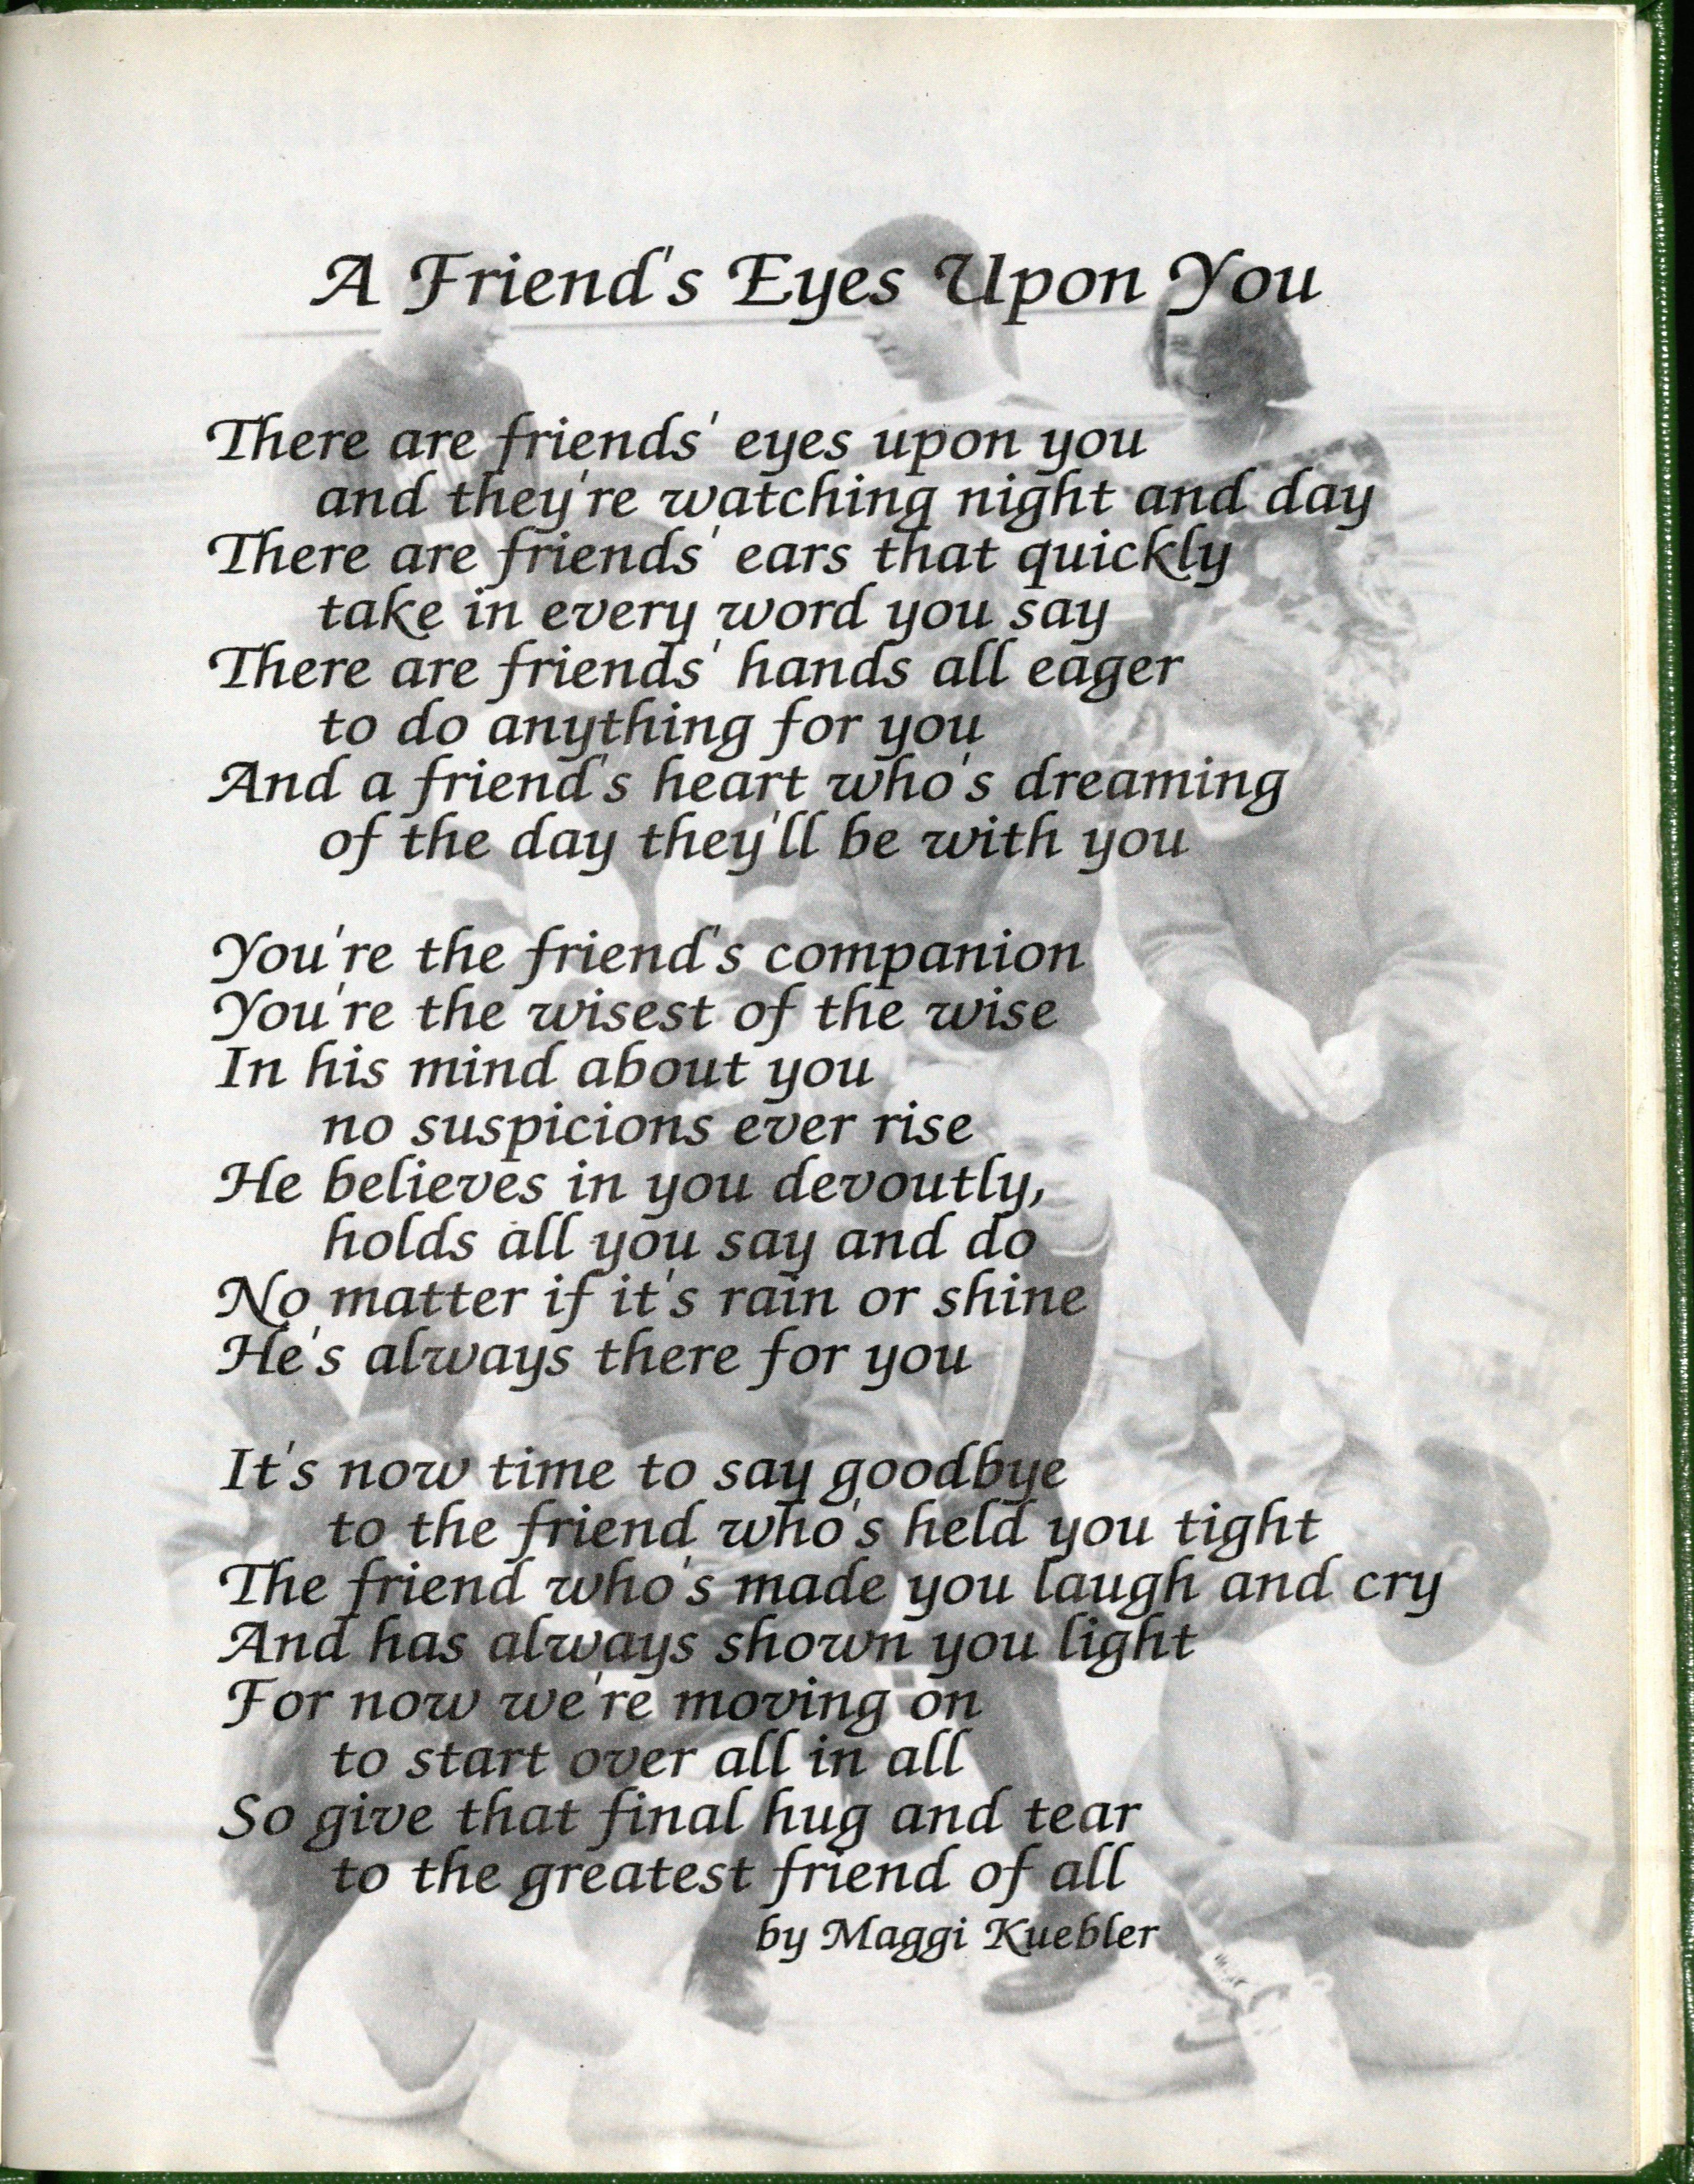 A Friend's Eyes Upon You
There are friends' eyes upon you
and they're watching night and day
There are friends' ears that quickly
take in every word you say
There are friends' hands all eager
to do anything for you
And a friend's heart who's dreaming
of the day they'll be with you
You're the friend's companion
You're the wisest of the wise
In his mind about you
no suspicions ever rise
He believes in you devoutly,
holds all you say and do
No matter if it's rain or shine
He's always there for you
It's now time to say goodbye
to the friend who's held you tight
The friend who's made you laugh and cry
And has always shown you light
For now we're moving on
to start over all in all
So give that final hug and tear
to the greatest friend of all
by Maggi Kuebler